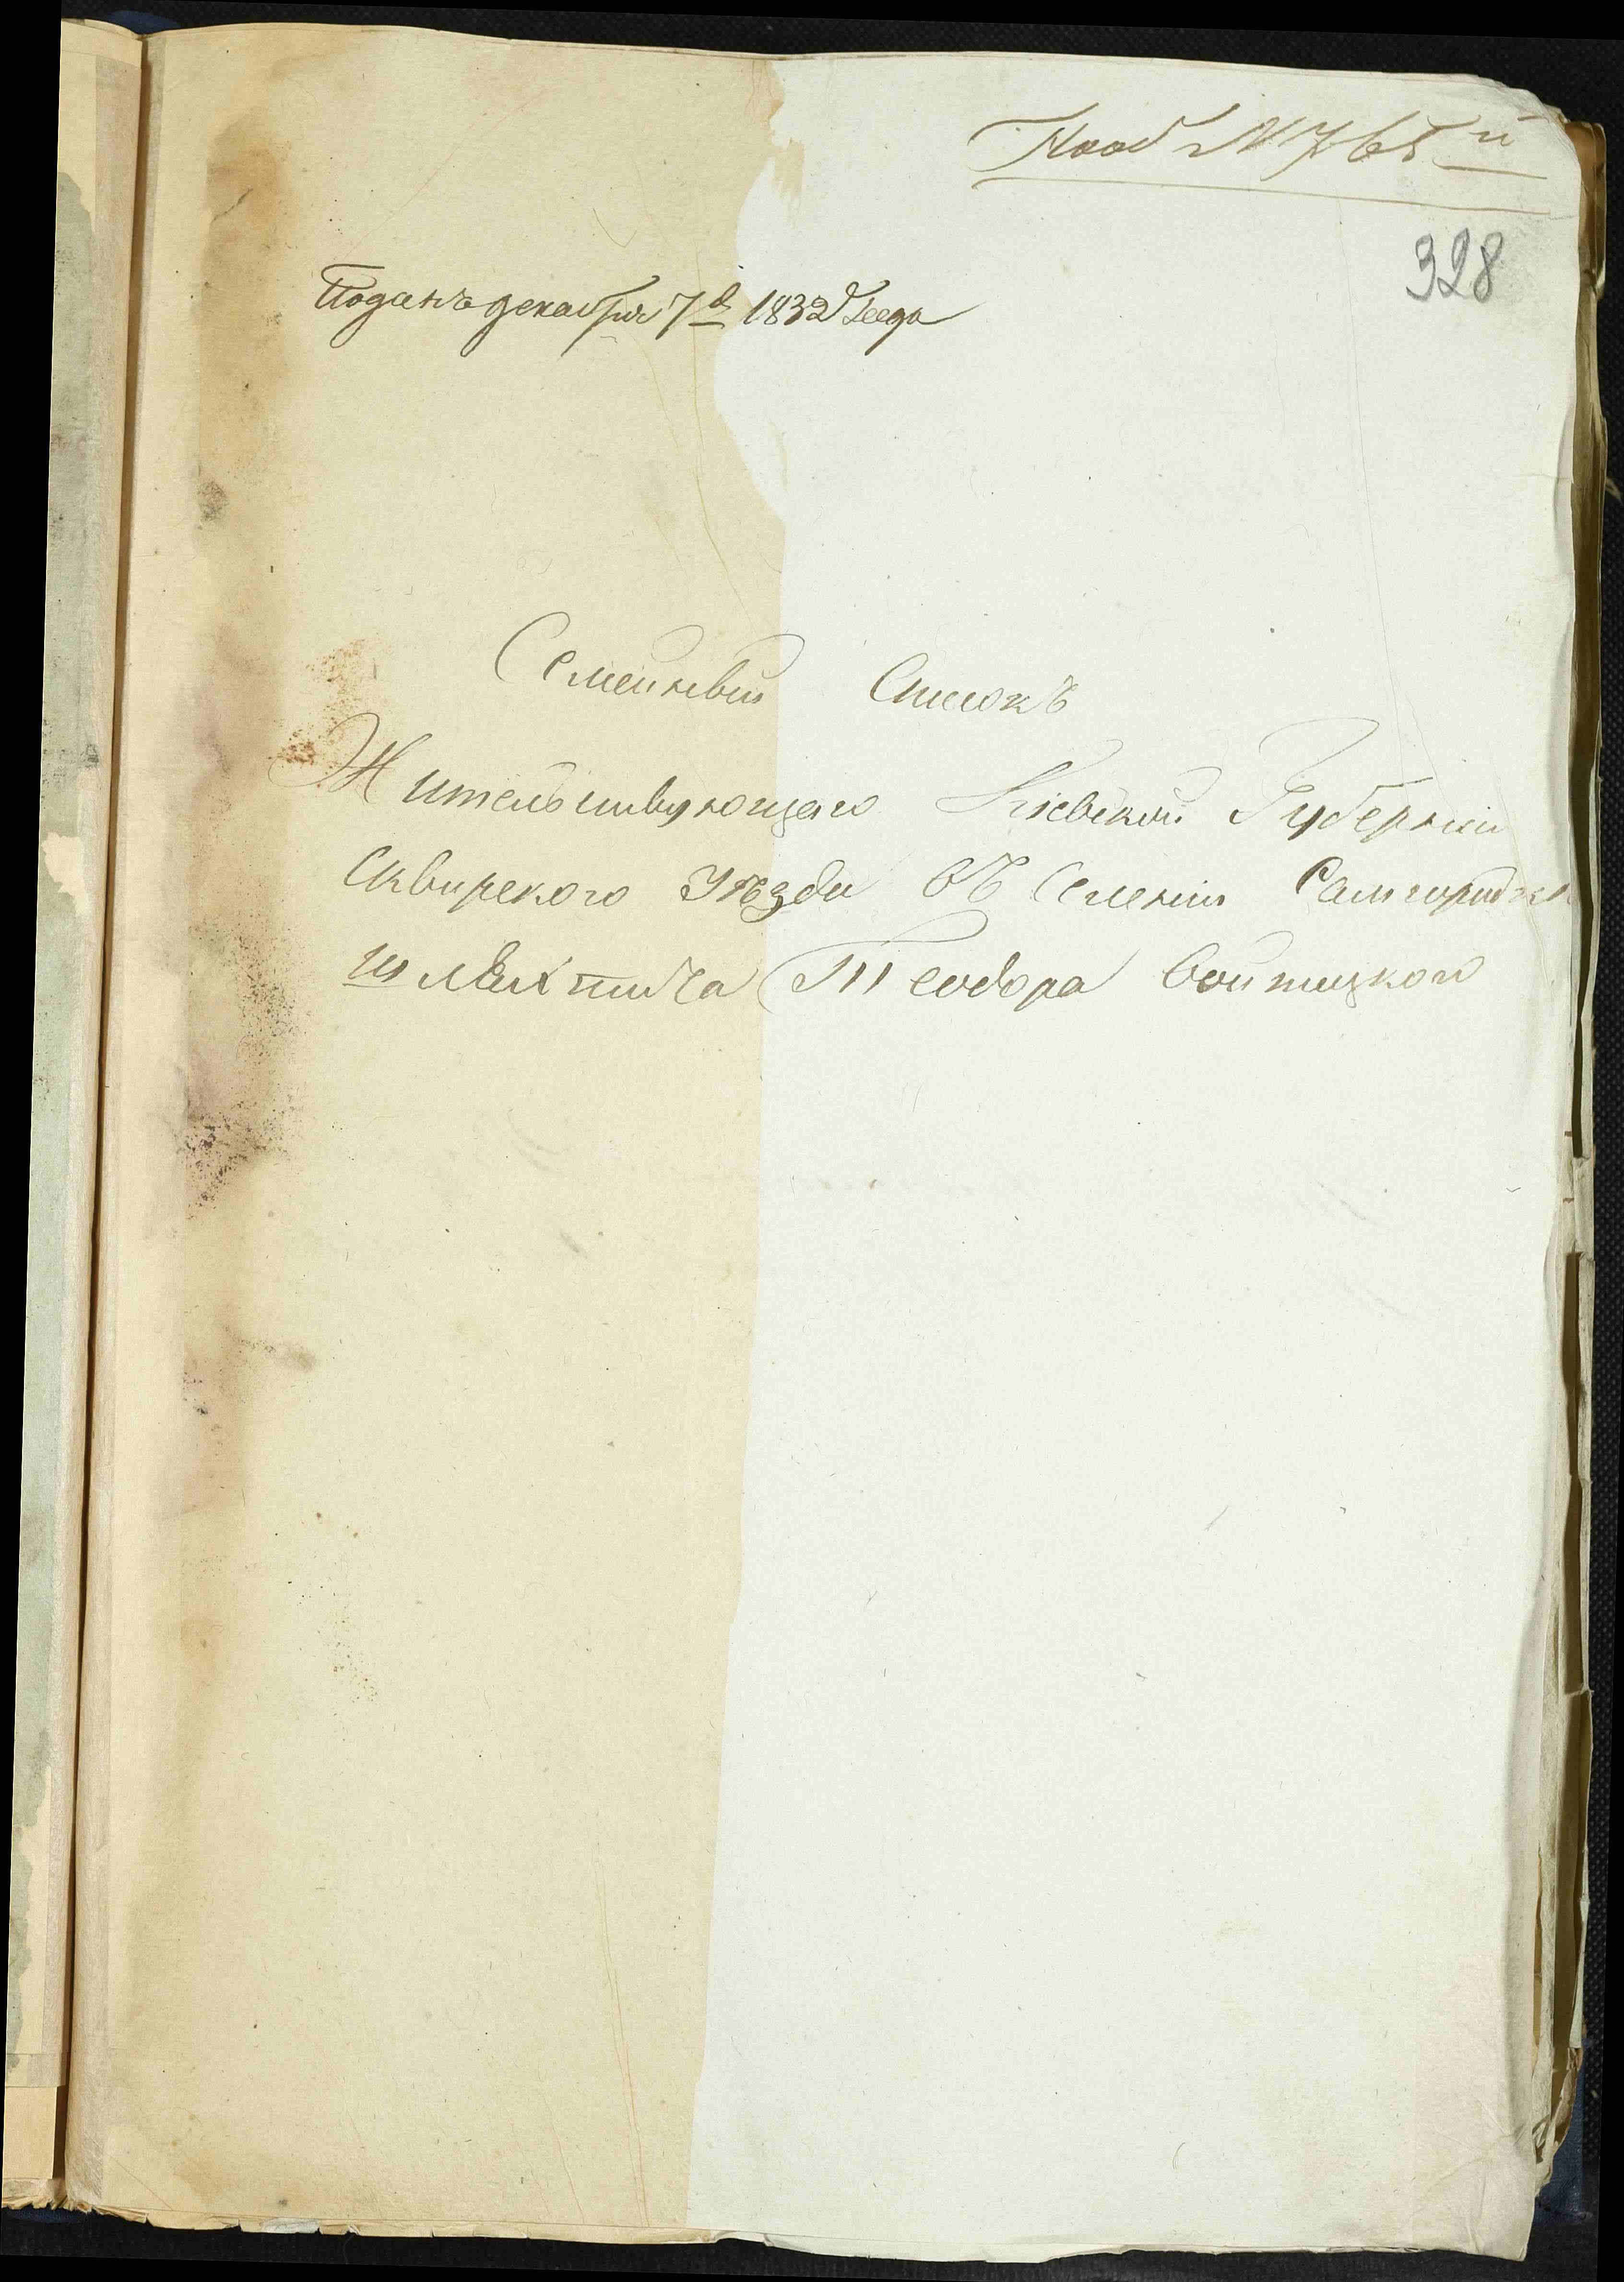 328
Поданъ декабря 7д 1832 Года
Семейный Списокъ
Жительствующаго Кіевской Губерніи
Сквирского Уѣзда Въ Селеніи Самгородк
шляхтича Теодора Войтицкого